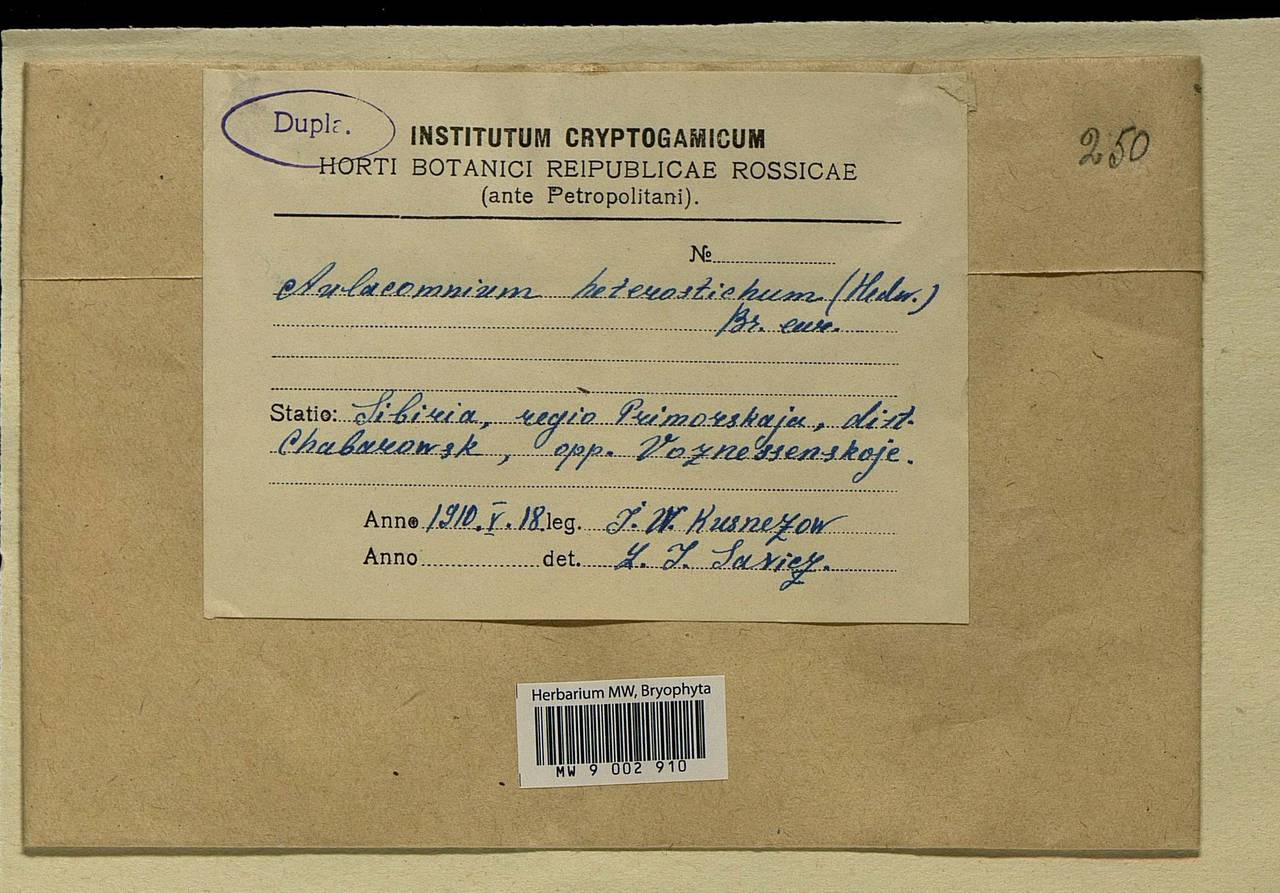 Dupla.
250
INSTITUTUM CRYPTOGAMICUM
HORTI BOTANICI REIPUBLICAE ROSSICAE
(ante Petropolitani).
№
Aulacomnium heterostichum (Hedw.)
Br. eur.
Statio: Sibiria, regio Primorskaja, dist.
Chabarowsk, opp. Voznessenskoje.
Anno 1910.V.18. leg. J. W. Kusnezow
Anno det. L. J. Savicz.
Herbarium MW, Bryophyta
MW 9 002 910